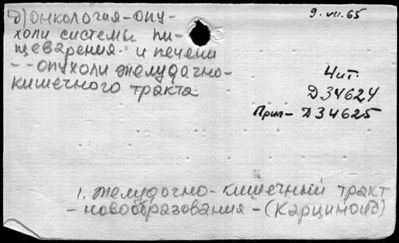 д) онкология-опу-
холи системы пи-
щеварения и печени
-- опухоли желудочно-
кишечного тракта
9.VII.65
Чит.
Д34624
Прип- Д34625
1. желудочно-кишечный тракт
- новообразования - (Карциноид)